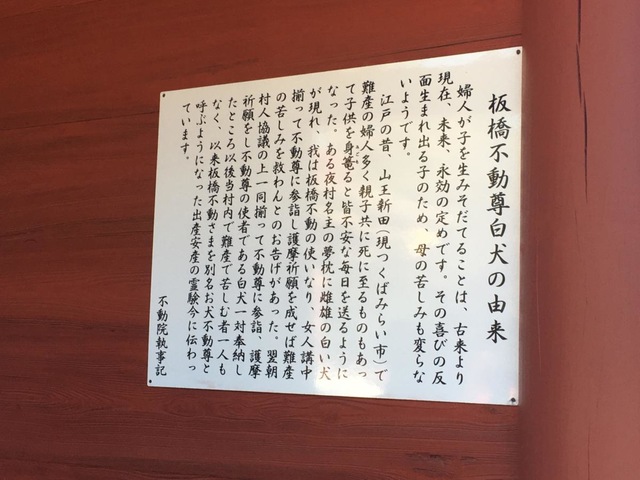 板橋不動尊白犬の由来
婦人が子を生みそだてることは、古来より
現在、未来、永効の定めです。その喜びの反
面生まれ出る子のため、母の苦しみも変らな
いようです。
江戸の昔、山王新田(現つくばみらい市)で
難産の婦人多く親子共に死に至るものもあっ
て子供を身篭ると皆不安な毎日を送るように
なった。ある夜村名主の夢枕に雌雄の白い犬
が現れ、我は板橋不動の使いなり、女人講中
揃って不動尊に参詣し護摩祈願を成せば難産
の苦しみを救わんとのお告げがあった。翌朝
村人協議の上一同揃って不動尊に参詣、護摩
祈願をし不動尊の使者である白犬一対奉納し
たところ以後当村内で難産で苦しむ者一人も
なく、以来板橋不動さまを別名お犬不動尊と
呼ぶようになった出産安産の霊験今に伝わっ
ています。
不動院執事記